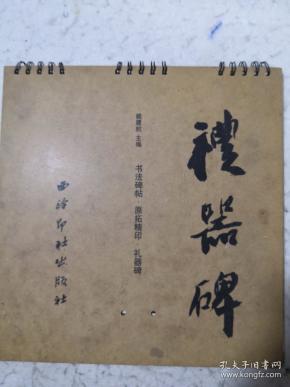 禮器碑
書法碑帖·原拓精印·礼器碑
主编
西泠印社出版社
孔夫子旧书网